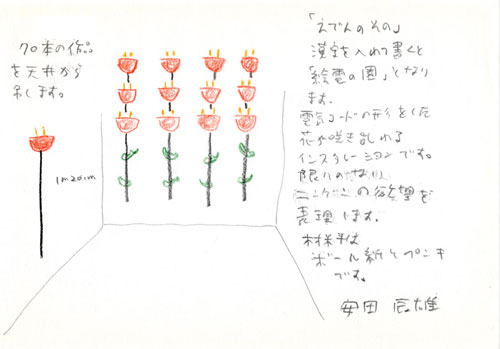 「えでんのその」
漢字を入れて書くと
「絵電の園」となり
ます。
電気コードの形をした
花が咲き乱れる
インスタレーションです。
限りのない
ニンゲンの欲望を
表現します。
材料は
ボール紙とペンキ
です。
安田 辰雄
70本の作品
を天井から
吊します。
1m20cm